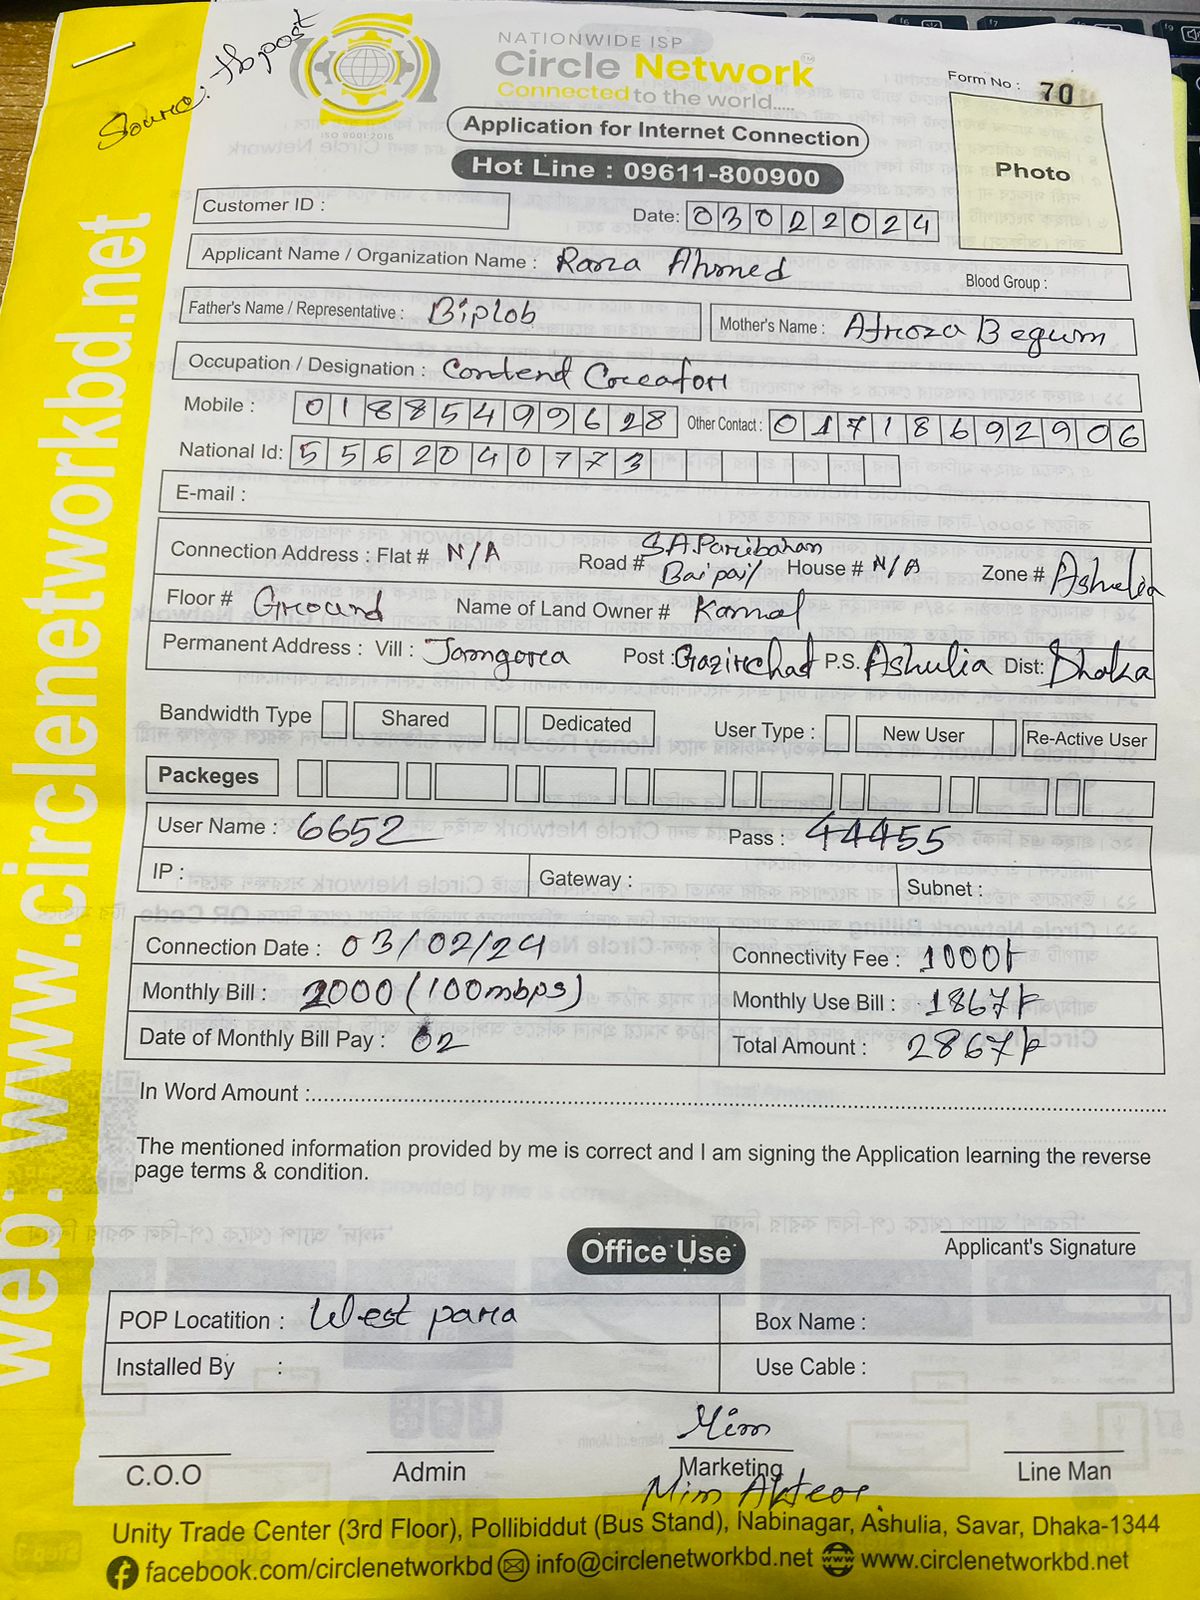 Source: fb post
NATIONWIDE ISP
Circle Network
Connected to the world.....
ISO 9001:2015
Form No : 70
Application for Internet Connection
Hot Line : 09611-800900
Photo
Customer ID :
Date: 03022024
Applicant Name / Organization Name : Rana Ahmed
Blood Group :
Father's Name / Representative : Biplob
Mother's Name : Afroza Begum
Occupation / Designation :
Mobile : 01885499628 Other Contact : 01718692906
National Id: 5562040773
E-mail :
Connection Address : Flat # N/A Road # S.A.Paribahan Baipail House # N/A Zone # Ashulia
Floor # Ground Name of Land Owner # Kamal
Permanent Address : Vill : Jamgora Post : Gazirchad P.S. Ashulia Dist: Dhaka
Bandwidth Type Shared Dedicated User Type : New User Re-Active User
Packeges
User Name : 6652 Pass : 44455
IP : Gateway : Subnet :
Connection Date : 03/02/24 Connectivity Fee : 1000/-
Monthly Bill : 2000 (100mbps) Monthly Use Bill : 1867/-
Date of Monthly Bill Pay : 02 Total Amount : 2867/-
In Word Amount :
The mentioned information provided by me is correct and I am signing the Application learning the reverse
page terms & condition.
Applicant's Signature
Office Use
POP Locatition : West para Box Name :
Installed By : Use Cable :
Mim
C.O.O Admin Marketing Line Man
Mim Akter
Unity Trade Center (3rd Floor), Pollibiddut (Bus Stand), Nabinagar, Ashulia, Savar, Dhaka-1344
facebook.com/circlenetworkbd.net info@circlenetworkbd.net www.circlenetworkbd.net
web: www.circlenetworkbd.net